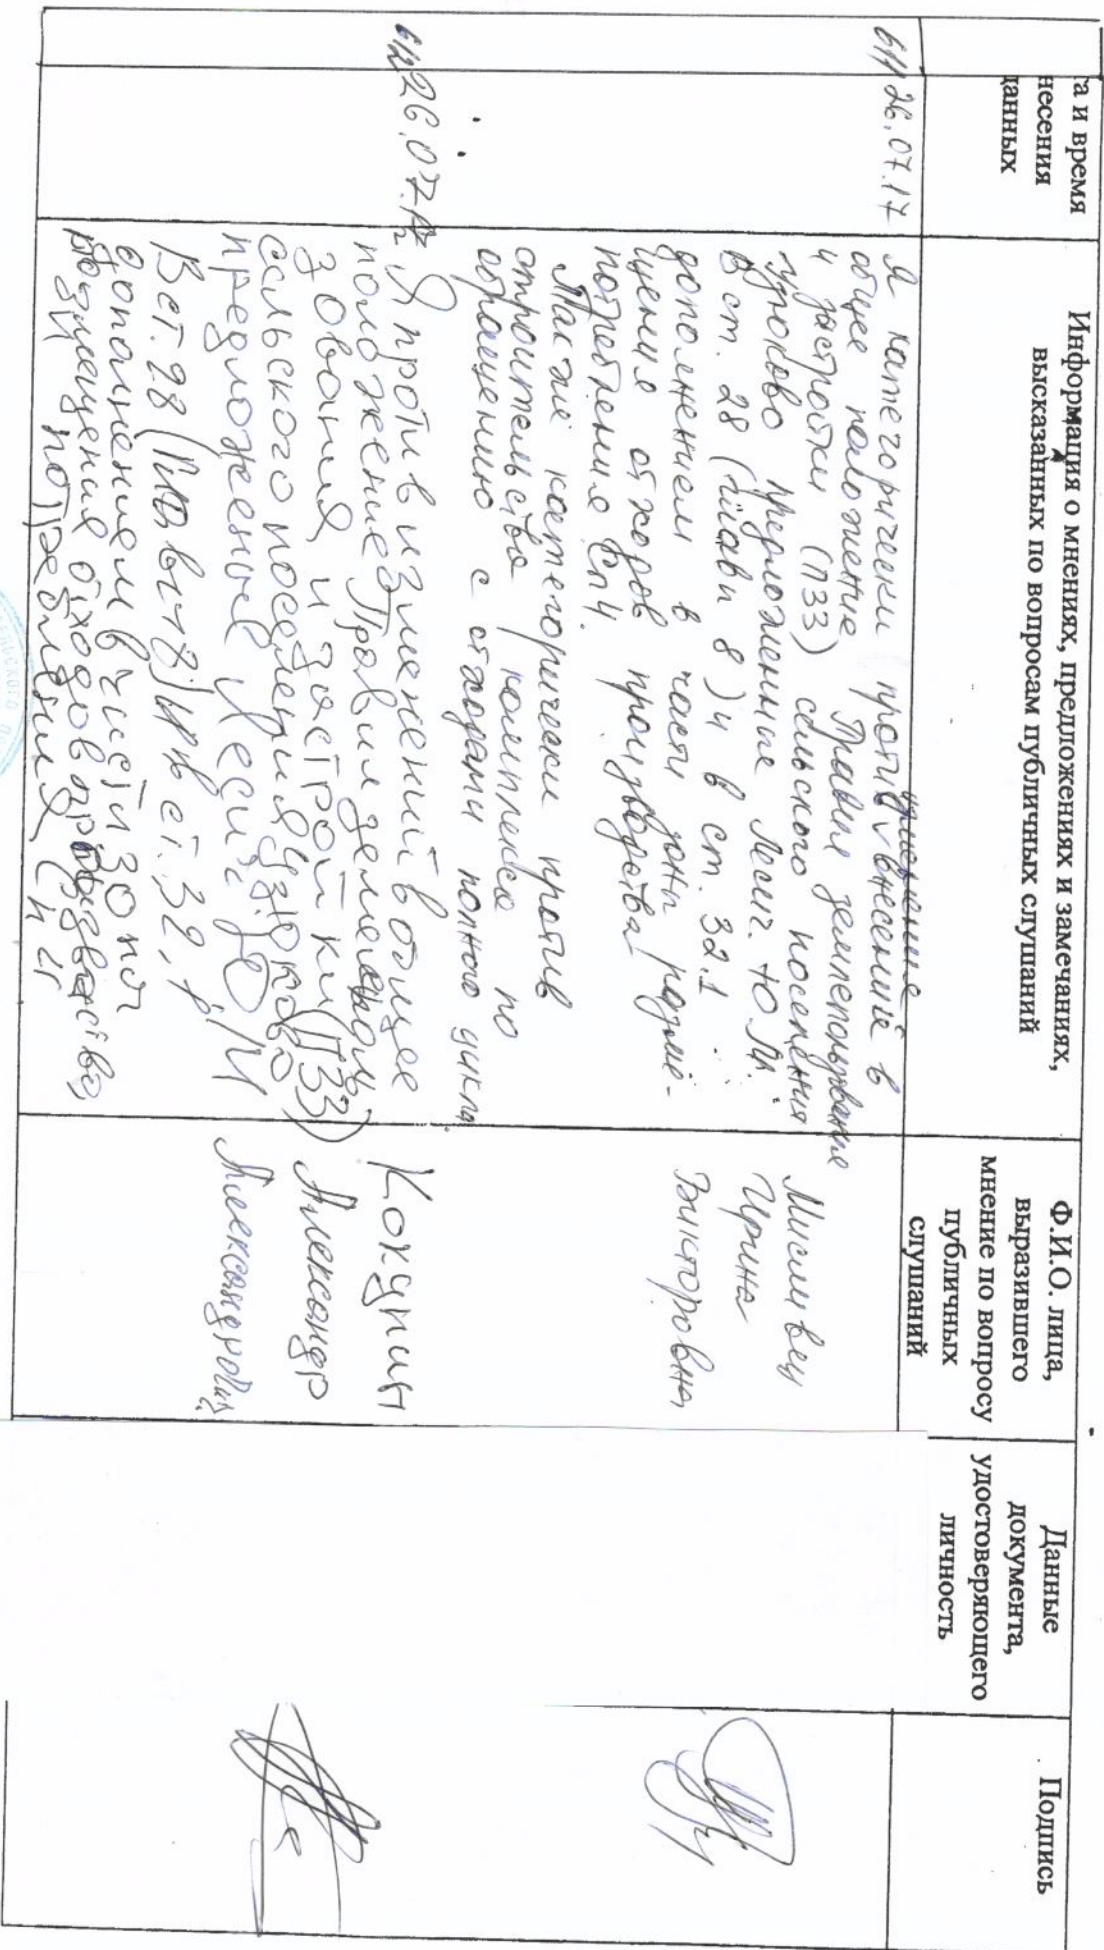 та и время
несения
данных
Информация о мнениях, предложениях и замечаниях,
высказанных по вопросам публичных слушаний
Ф.И.О. лица,
выразившего
мнение по вопросу
публичных
слушаний
Данные
документа,
удостоверяющего
личность
Подпись
611 26.07.17
Я категорически против внесений в
изменения
общее положение Правил землепользования
и застройки (ПЗЗ) сельского поселения
предложенные Лесич. Ю.М.
В ст. 28 (главы 8) и в ст. 32.1
дополнением в части зоны разме-
щения отходов производства
потребления Сп4.
Также категорически против
строительства комплекса по
обращению с отходами полного цикла.
Мисливец
Ирина
Викторовна
612 26.07.17
Я против изменений в общее
положение Правил землеполь
зования и застройки (ПЗЗ)
сельского поселения
предложенные Лесич Ю М
В ст. 28 (Главы 8) и в ст. 32,1
дополнением в части зоны
размещения отходов производства,
потребления (
Кокунин
Александр
Александрович